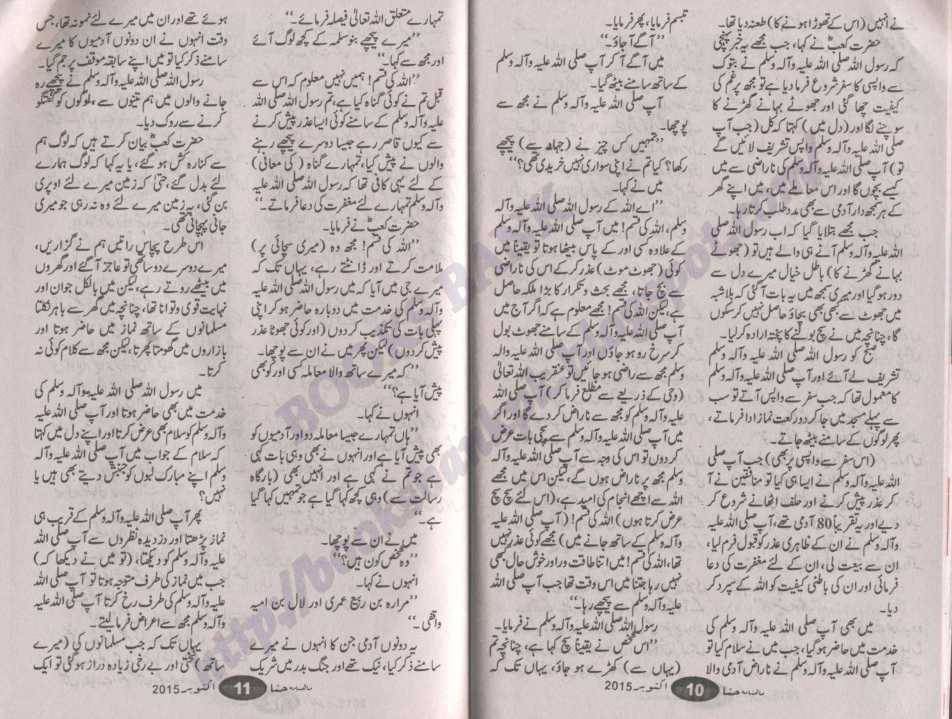 نے انہیں (اس کے تھوڑا ہونے کا) طعنہ دیا تھا۔
حضرت کعبؓ نے کہا، جب مجھے یہ خبر پہنچی
کہ رسول اللہ صلی اللہ علیہ وآلہ وسلم نے تبوک
سے واپسی کا سفر شروع فرما دیا ہے تو مجھ پر غم کی
کیفیت چھا گئی اور جھوٹے بہانے گھڑنے کا
سوچنے لگا اور (دل میں) کہتا کہ کل (جب آپ
صلی اللہ علیہ وآلہ وسلم واپس تشریف لائیں گے
تو) آپ صلی اللہ علیہ وآلہ وسلم کی ناراضی سے میں
کیسے بچوں گا اور اس معاملے میں، میں اپنے گھر
کے ہر سمجھدار آدمی سے بھی مدد طلب کرتا رہا۔
جب مجھے بتلایا گیا کہ اب رسول اللہ صلی
اللہ علیہ وآلہ وسلم آنے ہی والے ہیں تو (جھوٹے
بہانے گھڑنے کا) باطل خیال میرے دل سے
دور ہو گیا اور میری سمجھ میں یہ بات آ گئی کہ بلاشبہ
میں جھوٹ سے بھی بھی بچاؤ حاصل نہیں کر سکوں
گا، چنانچہ میں نے سچ بولنے کا پختہ ارادہ کر لیا۔
صبح کو رسول اللہ صلی اللہ علیہ وآلہ وسلم
تشریف لے آئے اور آپ صلی اللہ علیہ وآلہ وسلم
کا معمول تھا کہ جب سفر سے واپس آتے تو سب
سے پہلے مسجد میں جا کر دو رکعت نماز ادا فرماتے،
پھر لوگوں کے سامنے بیٹھ جاتے۔
(اس سفر سے واپسی پر بھی) جب آپ صلی
اللہ علیہ وآلہ وسلم نے ایسا ہی کیا تو منافقین نے آ
کر عذر پیش کرنے اور حلف اٹھانے شروع کر
دیے اور یہ تقریباً 80 آدمی تھے، آپ صلی اللہ علیہ
وآلہ وسلم نے ان کے ظاہری عذر کو قبول فرم لیا،
ان سے بیعت لی، ان کے لئے مغفرت کی دعا
فرمائی اور ان کی باطنی کیفیت کو اللہ کے سپرد کر
دیا۔
میں بھی آپ صلی اللہ علیہ وآلہ وسلم کی
خدمت میں حاضر ہو گیا، جب میں نے سلام کیا تو
آپ صلی اللہ علیہ وآلہ وسلم نے ناراض آدمی والا
تبسم فرمایا، پھر فرمایا۔
”آگے آ جاؤ۔“
میں آگے آ کر آپ صلی اللہ علیہ وآلہ وسلم
کے ساتھ سامنے بیٹھ گیا۔
آپ صلی اللہ علیہ وآلہ وسلم نے مجھ سے
پوچھا۔
”تمہیں کس چیز نے (جہاد سے) پیچھے
رکھا؟ کیا تم نے اپنی سواری نہیں خریدی تھی؟“
میں نے کہا۔
”اے اللہ کے رسول اللہ صلی اللہ علیہ وآلہ
وسلم، اللہ کی قسم! میں آپ صلی اللہ علیہ وآلہ وسلم
کے علاوہ کسی اور کے پاس بیٹھا ہوتا تو یقیناً میں
کوئی (جھوٹ موٹ) عذر کر کے اس کی ناراضی
سے بچ جاتا، مجھے بحث و تکرار کا بڑا ملکہ حاصل
ہے لیکن اللہ کی قسم! مجھے معلوم ہے کہ اگر آج میں
آپ صلی اللہ علیہ وآلہ وسلم کے سامنے جھوٹ بول
کر سرخ رو ہو جاؤں اور آپ صلی اللہ علیہ والہ
وسلم مجھ سے راضی ہو جائیں تو عنقریب اللہ تعالیٰ
(وحی کے ذریعے سے مطلع فرما کر) آپ صلی اللہ
علیہ وآلہ وسلم کو مجھ سے ناراض کر دے گا اور اگر
میں آپ صلی اللہ علیہ وآلہ وسلم سے سچی بات عرض
کر دوں تو اس کی وجہ سے آپ صلی اللہ علیہ وآلہ
وسلم مجھ پر ناراض ہوں گے، لیکن اس میں مجھے
اللہ سے اچھے انجام کی امید ہے، (اس لئے سچ سچ
عرض کرتا ہوں) اللہ کی قسم! (آپ صلی اللہ علیہ
وآلہ وسلم کے ساتھ جانے میں) مجھے کوئی عذر نہیں
تھا، اللہ کی قسم! میں اتنا طاقت ور اور خوش حال بھی
نہیں رہا جتنا میں اس وقت تھا جب آپ صلی اللہ
علیہ وآلہ وسلم سے پیچھے رہا۔“
رسول اللہ صلی اللہ علیہ وآلہ وسلم نے فرمایا۔
”اس شخص نے یقیناً سچ کہا ہے، چنانچہ تم
(یہاں سے) کھڑے ہو جاؤ، یہاں تک کہ
ماہنامہ حنا 10 اکتوبر 2015
تمہارے متعلق اللہ تعالیٰ فیصلہ فرمائے۔“
”میرے پیچھے بنو سلمہ کے کچھ لوگ آئے
اور مجھ سے کہا۔“
”اللہ کی قسم! ہمیں نہیں معلوم کہ اس سے
قبل تم نے کوئی گناہ کیا ہے، تم رسول اللہ صلی اللہ
علیہ وآلہ وسلم کے سامنے کوئی ایسا عذر پیش کرنے
سے کیوں قاصر رہے جیسا دوسرے پیچھے رہنے
والوں نے پیش کیا، تمہارے گناہ (کی معافی)
کے لئے یہی کافی تھا کہ رسول اللہ صلی اللہ علیہ
وآلہ وسلم تمہارے لئے مغفرت کی دعا فرماتے۔“
حضرت کعبؓ نے فرمایا۔
”اللہ کی قسم! مجھ وہ (میری سچائی پر)
ملامت کرتے اور ڈانٹتے رہے، یہاں تک کہ
میرے جی میں آیا کہ میں رسول اللہ صلی اللہ علیہ
وآلہ وسلم کی خدمت میں دوبارہ حاضر ہو کر اپنی
پہلی بات کی تکذیب کر دوں (اور کوئی جھوٹا عذر
پیش کر دوں) لیکن پھر میں نے ان سے پوچھا۔
”کہ میرے ساتھ والا معاملہ کسی اور کو بھی
پیش آیا ہے؟“
انہوں نے کہا۔
”ہاں تمہارے جیسا معاملہ دو اور آدمیوں کو
بھی پیش آیا ہے اور انہوں نے بھی وہی بات کہی
ہے جو تم نے کہی ہے اور انہیں بھی (بارگاہ
رسالت سے) وہی کچھ کہا گیا ہے جو تمہیں کہا گیا
ہے۔“
میں نے ان سے پوچھا۔
”وہ شخص کون ہیں؟“
انہوں نے کہا۔
”مرارہ بن ربیع عمری اور لال بن امیہ
واقفی۔“
یہ دونوں آدمی جن کا انہوں نے میرے
سامنے ذکر کیا، نیک تھے اور جنگ بدر میں شریک
ہوئے تھے اور ان میں میرے لئے نمونہ تھا، جس
وقت انہوں نے ان دونوں آدمیوں کا میرے
سامنے ذکر کیا تو میں اپنے سابقہ موقف پر جم گیا۔
رسول اللہ صلی اللہ علیہ وآلہ وسلم نے پیچھے رہ
جانے والوں میں ہم تینوں سے، لوگوں کو گفتگو
کرنے سے روک دیا۔
حضرت کعبؓ بیان کرتے ہیں کہ لوگ ہم
سے کنارہ کش ہو گئے، یا یہ کہا کہ لوگ ہمارے
لئے بدل گئے، حتیٰ کہ زمین میرے لئے اوپری
بن گئی، یہ زمین میرے لئے وہ نہ رہی جو میری
جانی پہچانی تھی۔
اس طرح پچاس راتیں ہم نے گزاریں،
میرے دوسرے دو ساتھی تو عاجز آ گئے اور گھروں
میں بیٹھے روتے رہے، لیکن میں بالکل جوان اور
نہایت قوی و توانا تھا، چنانچہ میں گھر سے باہر نکلتا
مسلمانوں کے ساتھ نماز میں حاضر ہوتا اور
بازاروں میں گھومتا پھرتا، لیکن مجھ سے کلام کوئی نہ
کرتا۔
میں رسول اللہ صلی اللہ علیہ وآلہ وسلم کی
خدمت میں بھی حاضر ہوتا اور آپ صلی اللہ علیہ
وآلہ وسلم کو سلام بھی عرض کرتا اور اپنے دل میں کہتا
کہ سلام کے جواب میں آپ صلی اللہ علیہ وآلہ
وسلم اپنے مبارک لبوں کو جنبش دیتے بھی ہیں یا
نہیں؟
پھر آپ صلی اللہ علیہ وآلہ وسلم کے قریب ہی
نماز پڑھتا اور دزدیدہ نظروں سے آپ صلی اللہ
علیہ وآلہ وسلم کو دیکھتا، (تو میں نے دیکھا کہ)
جب میں نماز کی طرف متوجہ ہوتا تو آپ صلی اللہ
علیہ وآلہ وسلم میری طرف رخ کرتا تو آپ
وآلہ وسلم مجھ سے اعراض فرما لیتے۔
یہاں تک کہ جب مسلمانوں کی (میرے
ساتھ) سختی اور بے رخی زیادہ دراز ہو گئی تو ایک
ماہنامہ حنا 11 اکتوبر 2015